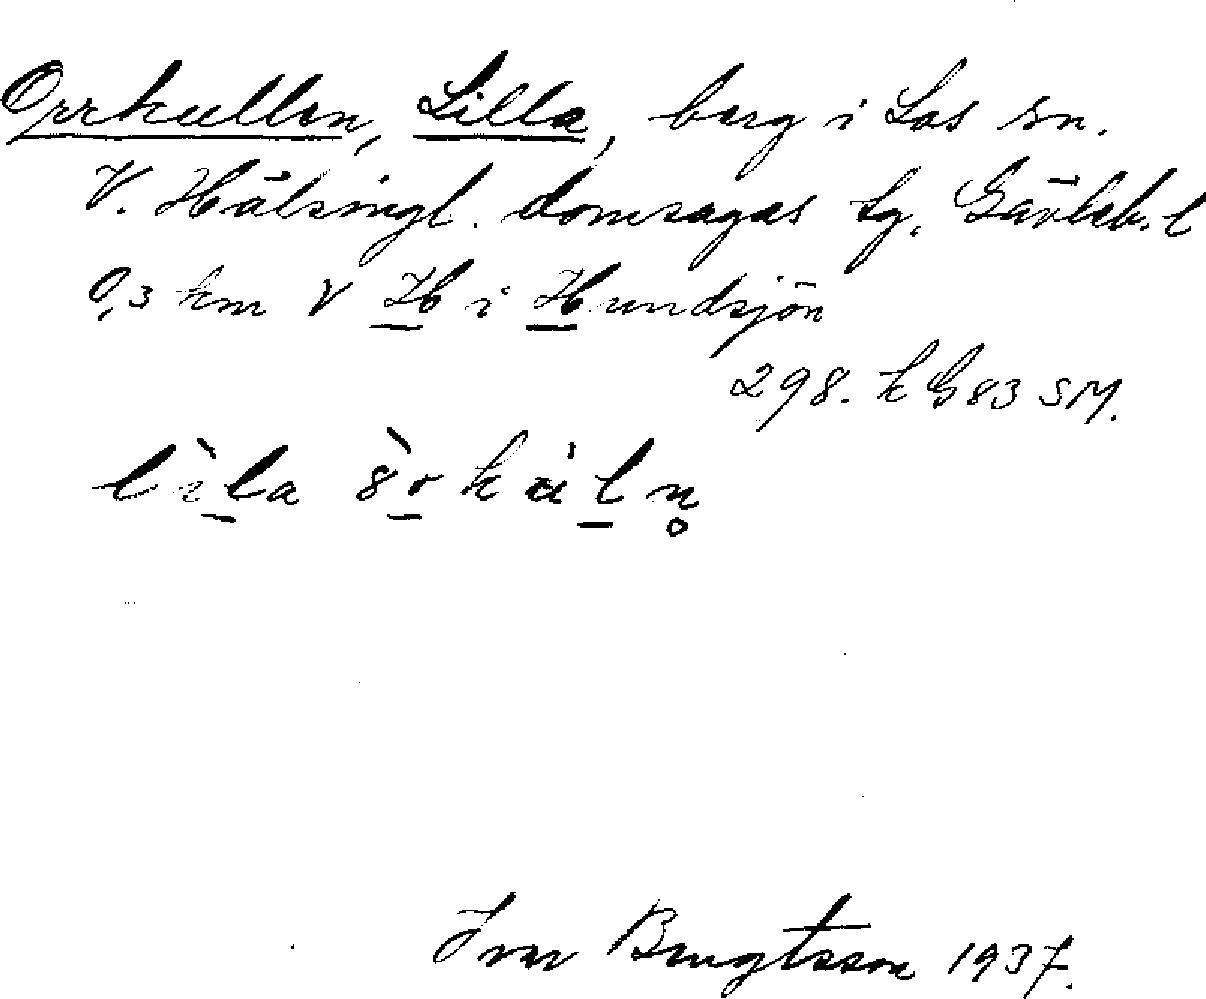 Orrkullen, Lilla, berg i Los sn.
V. Hälsingl. domsagas tg. Gävleb. l
0,3 km V H i Hundsjön
298. k G 83 SM.
lìla òrkúln̥
Ivar Bengtsson 1937.